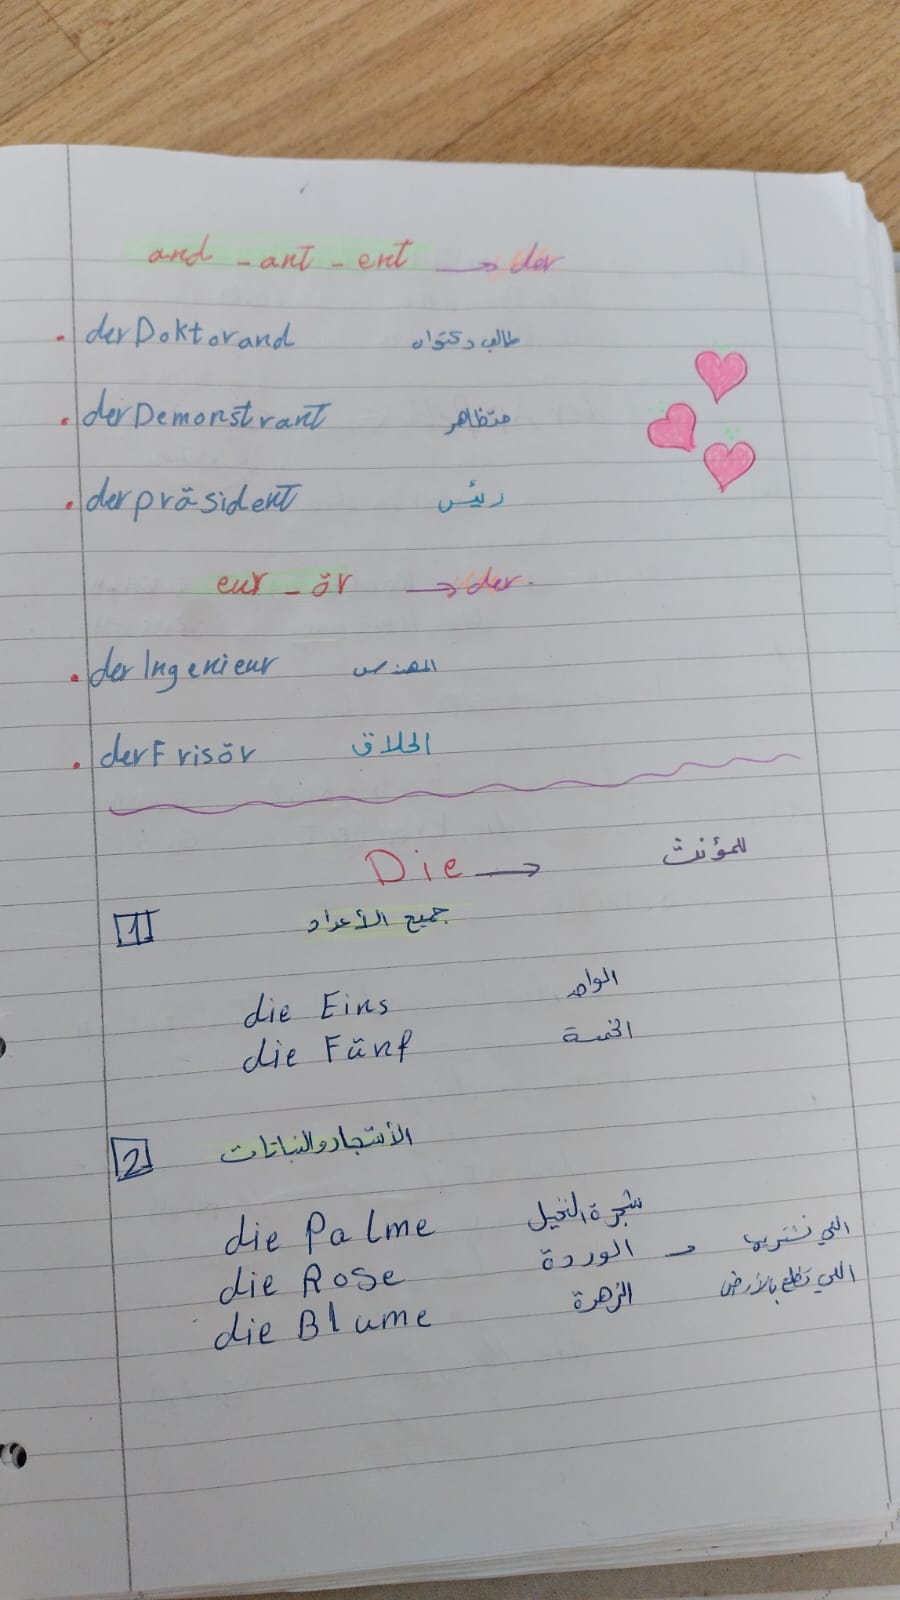 and - ant - ent → der
• der Doktorand طالب دكتوراه
• der Demonstrant متظاهر
• der präsident رئيس
eur - ör → der.
• der Ingenieur المهندس
• der Frisör الحلاق
Die → للمؤنث
1 جميع الأعداد
die Eins الواحد
die Fünf الخمسة
2 الأشجار والنباتات
die Palme شجرة النخيل
die Rose الوردة → اللي نشتريها
die Blume الزهرة اللي تطلع بالأرض